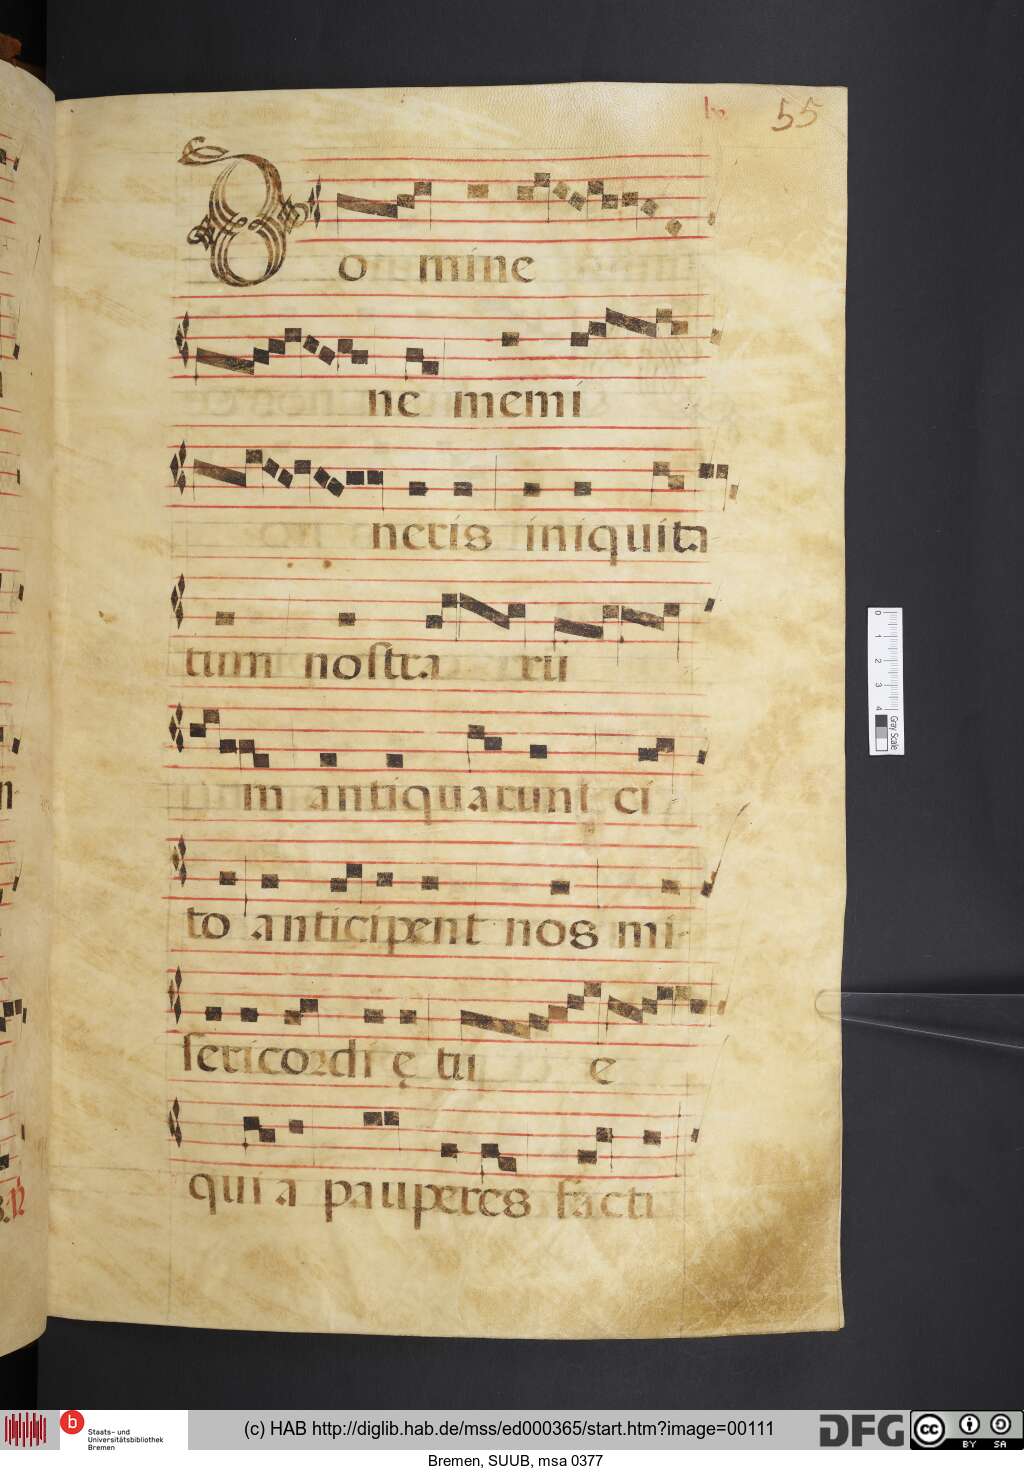 55
Do mine
ne memi
neris iniquita
tum noſtra rū
m antiquarum ci
to anticipent nos mi-
ſericordi ę tu e
qui a pauperes facti
0 1 2 3 4
Gray Scale
b Staats- und
Universitätsbibliothek
Bremen
(c) HAB http://diglib.hab.de/mss/ed000365/start.htm?image=00111
DFG
cc BY SA
Bremen, SUUB, msa 0377